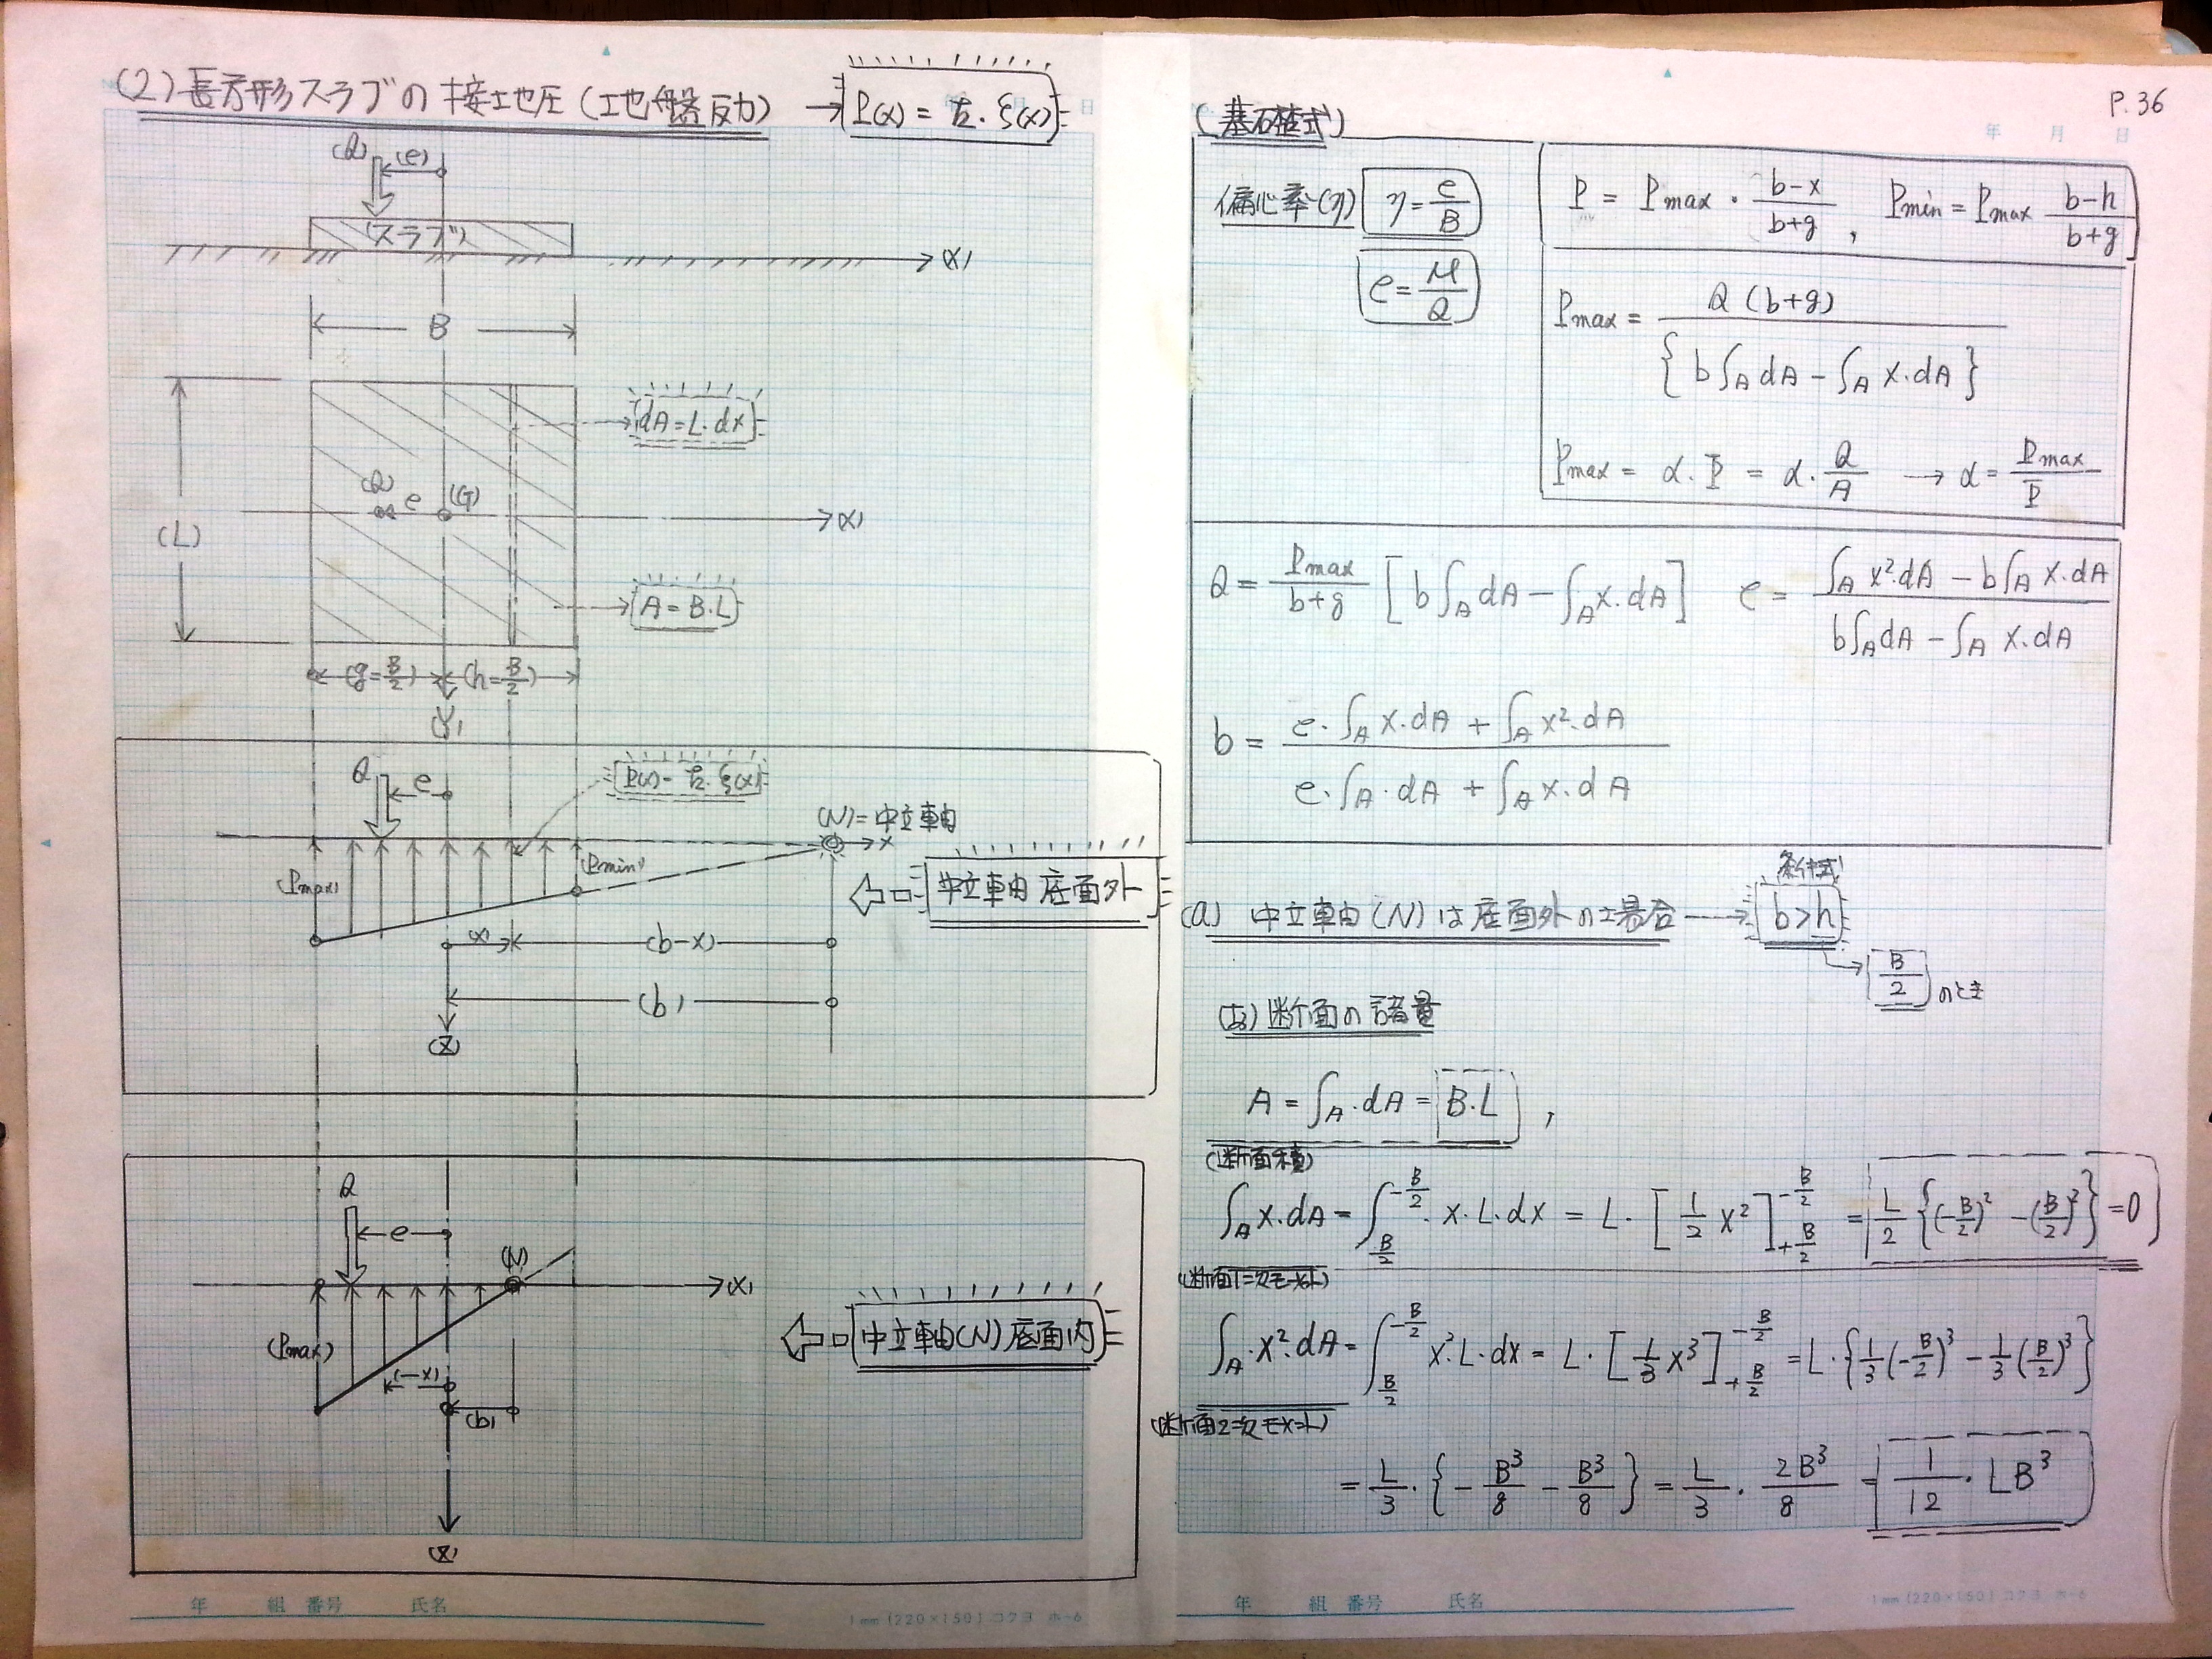 (2) 長方形スラブの接地圧(地盤反力) → P(x) = k・ξ(x)
(Q) (e)
(スラブ)
(x)
B
dA = L・dx
(Q) e (G)
(x)
(L)
A = B・L
(g = B/2) (h = B/2)
(y)
Q e P(x) = k・ξ(x)
(N) = 中立軸
x
(Pmax) (Pmin)
中立軸 底面外
(x) (b-x)
(b)
(z)
Q
e (N)
(x)
(Pmax)
中立軸(N)底面内
(-x)
(b)
(z)
年 組 番号 氏名
1mm (220×150) コクヨ ホ-6
P.36
年 月 日
(基礎式)
偏心率(η) η = e/B
e = M/Q
P = Pmax・(b-x)/(b+g) , Pmin = Pmax (b-h)/(b+g)
Pmax = Q(b+g) / {b∫A dA - ∫A x・dA}
Pmax = α・P = α・Q/A → α = Pmax/P
Q = Pmax/(b+g) [b∫A dA - ∫A x・dA] e = (∫A x²・dA - b∫A x・dA) / (b∫A dA - ∫A x・dA)
b = (e・∫A x・dA + ∫A x²・dA) / (e・∫A・dA + ∫A x・dA)
条件式
(a) 中立軸(N)は底面外の場合 → b > h
B/2 のとき
(あ) 断面の諸量
A = ∫A・dA = B・L ,
(断面積)
∫A x・dA = ∫_{B/2}^{-B/2} x・L・dx = L・[1/2 x²]_{+B/2}^{-B/2} = L/2 {(-B/2)² - (B/2)²} = 0
(断面1次モーメント)
∫A・x²・dA = ∫_{B/2}^{-B/2} x²・L・dx = L・[1/3 x³]_{+B/2}^{-B/2} = L・{1/3(-B/2)³ - 1/3(B/2)³}
(断面2次モーメント)
= L/3・{-B³/8 - B³/8} = L/3・2B³/8 = 1/12・LB³
年 組 番号 氏名
1mm (220×150) コクヨ ホ-6